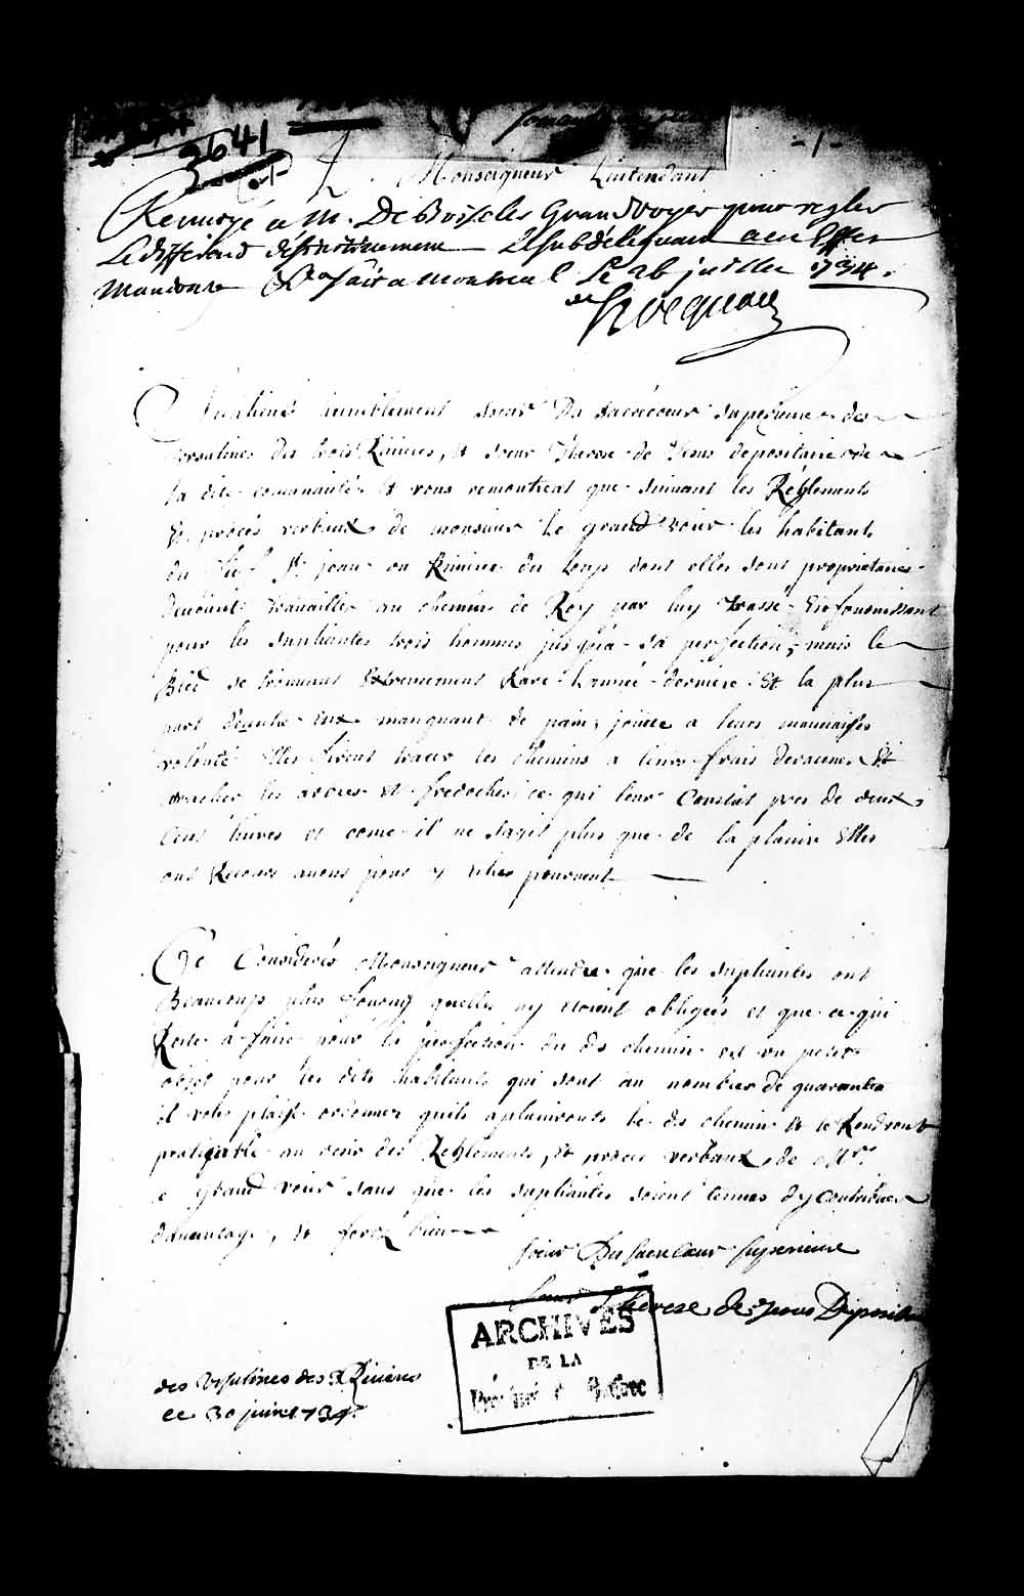 3641
-1-
A Monseigneur Lintendant
Renvoyé a M. De Boiscler Grand voyer pour regler
Le differend
mandons fait a Montreal Le 26 juillet 1734.
hocquart
Suplient humblement soeur Du sacrécoeur superieure des
ursulines des trois Rivieres, et soeur Therese de Jesus depositaire de
la dite comunauté Et vous remontrent que suivant les Réglements
Et procés verbeaux de monsieur Le grand voier les habitants
du fief St jean ou Riviere du loup dont elles sont proprietaires
devoient travailler au chemin de Roy par luy trassé En fournissant
pour les supliantes trois hommes jusqu'a sa perfection, mais le
Bled se trouvant Extremement Rare L'année derniere Et la plus
part d'entre Eux manquant de pain, jointe a leurs mauvaises
volonté Elles firent tracer les chemins a leurs frais deraciner Et
arracher les arbres et fredoches ce qui leur Coustat pres de deux
Cent livres et come il ne sagit plus que de la planir Elles
ont Recours a vous pour y Estre pourveut
Ce Considerés Monseigneur attendu que les supliantes ont
Beaucoup plus fourny quelles ny etoient obligées et que ce qui
Reste a faire pour la perfection du ds chemin est un petit
objet pour les dits habitants qui sont au nombre de quarante
il vous plaise ordonner quils aplaniront le ds chemin Et le Rendront
pratiquable au desir des Réglements, et proces verbaux de Mr.
le grand voier sans que les supliantes soient tenues dy contribuer
davantage, et ferez bien
soeur Du sacré Coeur superieure
Soeur Therese de Jesus Deposit
ARCHIVES
DE LA
Province de Québec
des Ursulines des 3 Rivieres
ce 30 juin 1734